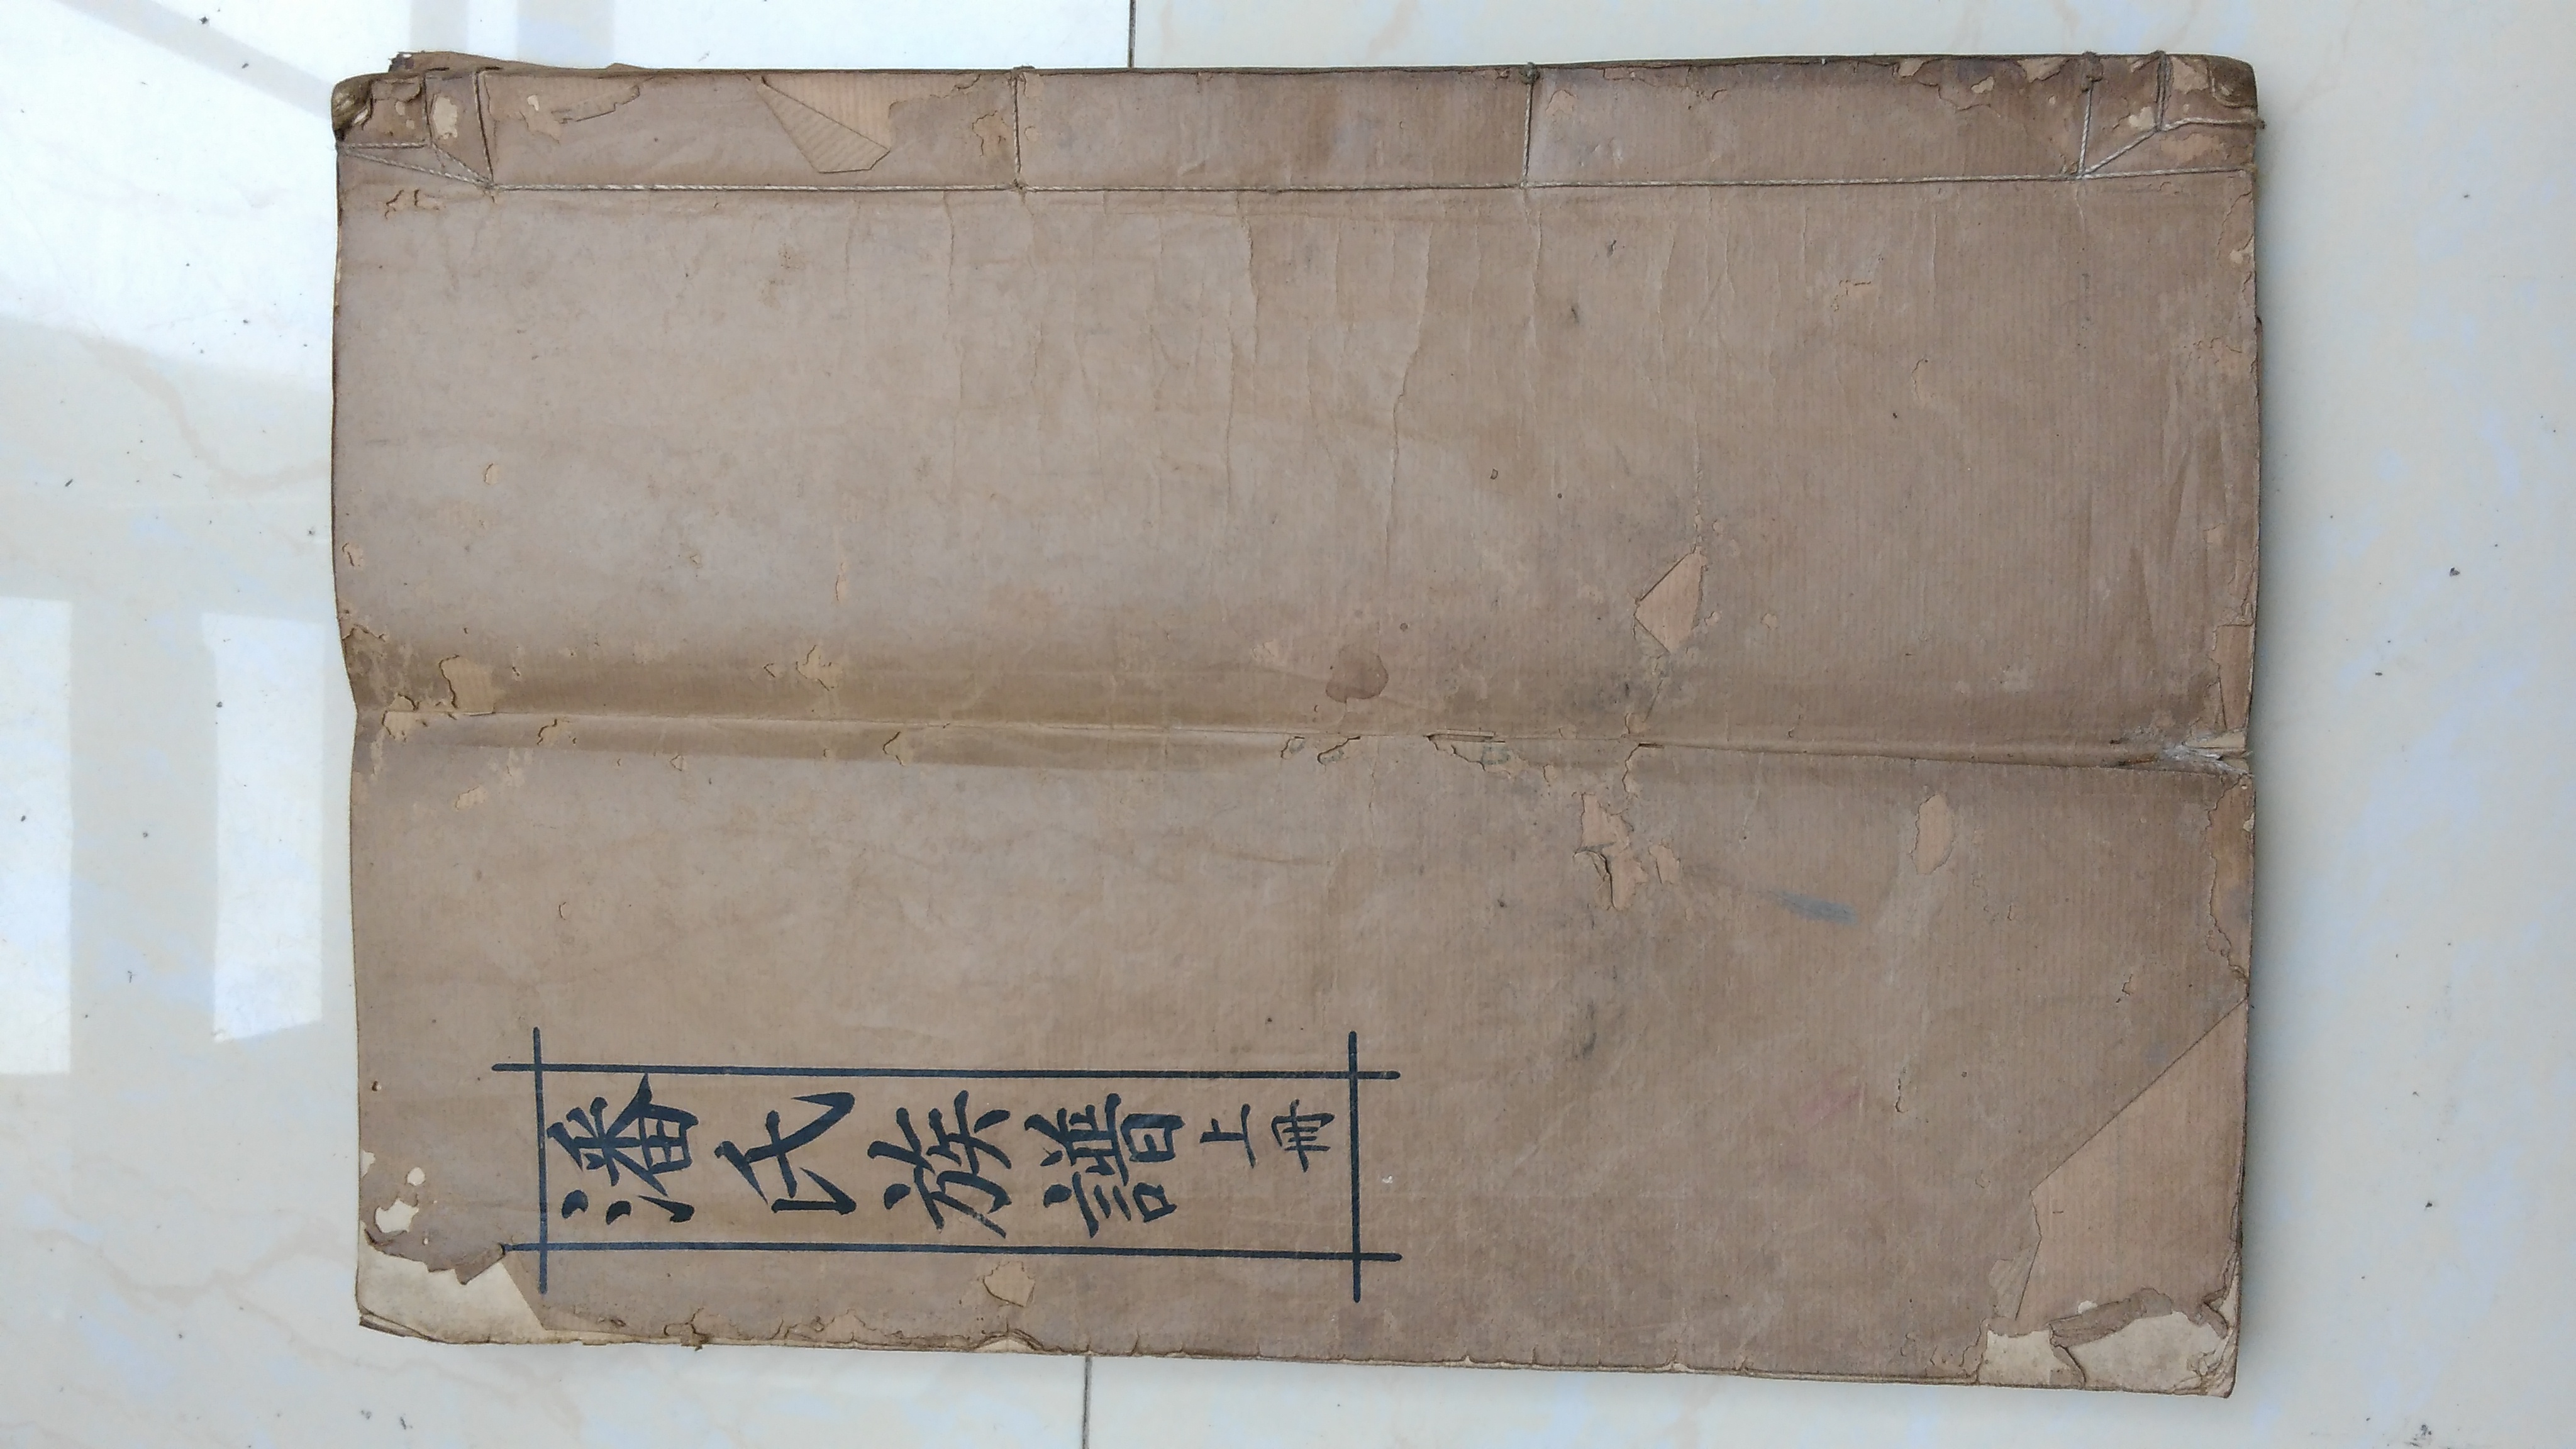 潘氏族譜上冊